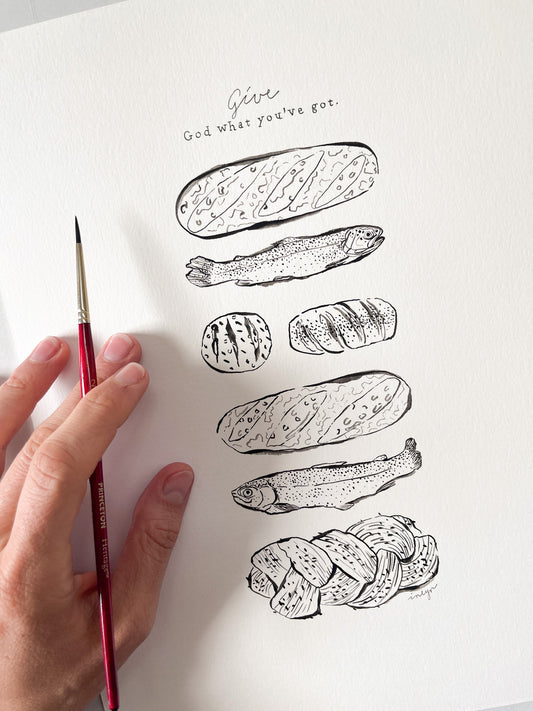 Give
God what you've got.
PRINCETON
Heritage
inlyn